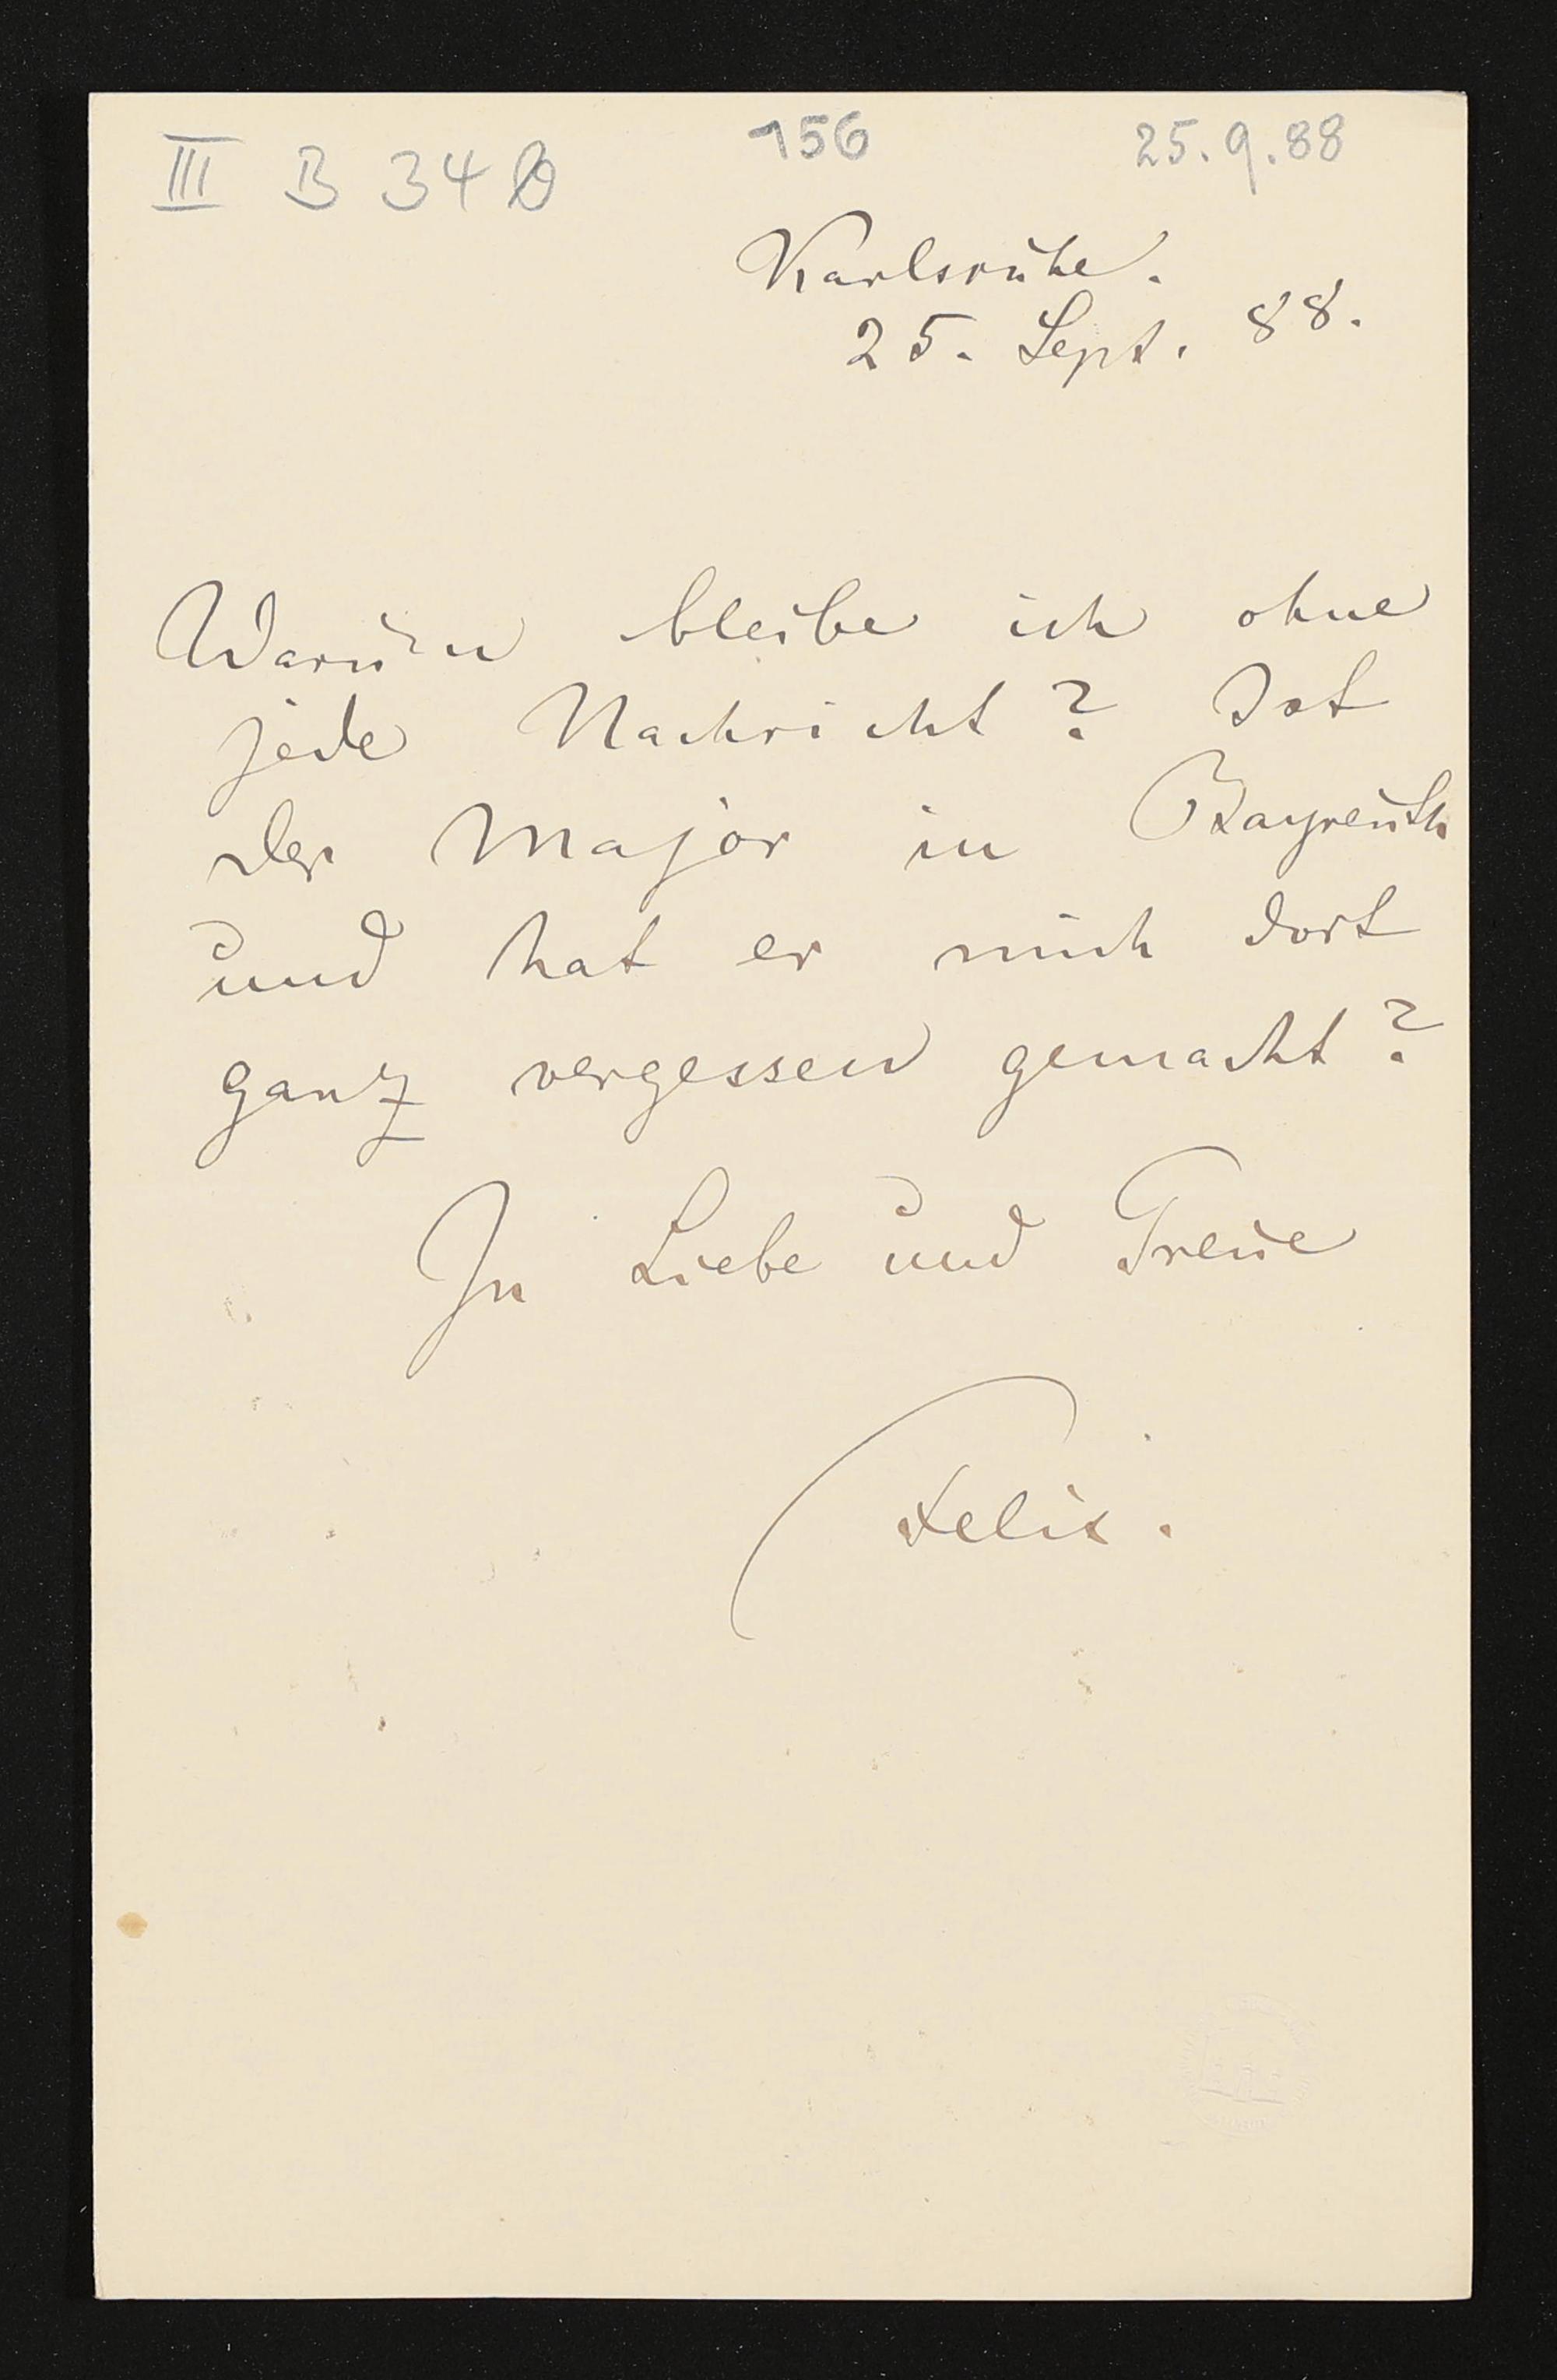 III B 34
156
25.9.88
Karlsruhe.
25. Sept. 88.
Warum bleibe ich ohne
jede Nachricht? Ist
der Major in Bayreuth
und hat er mich dort
ganz vergessen gemacht?
In Liebe und Treue
Felix.